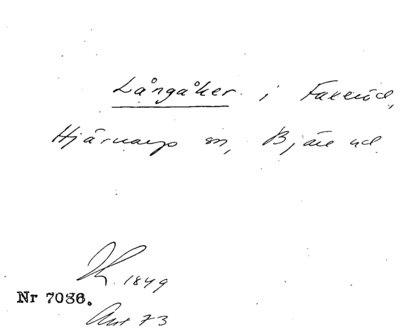 Långåker i Faxeröd,
Hjärnarps sn, Bjäre hd.
K. 1849
Nr 7086.
Ant 73